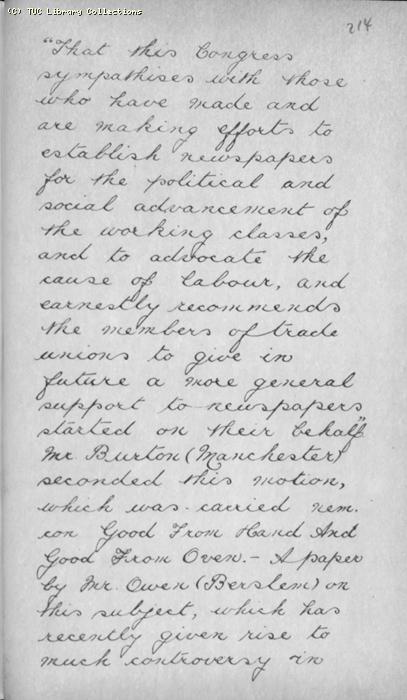 (C) TUC Library Collections
214
"That this Congress
sympathises with those
who have made and
are making efforts to
establish newspapers
for the political and
social advancement of
the working classes,
and to advocate the
cause of labour, and
earnestly recommends
the members of trade
unions to give in
future a more general
support to newspapers
started on their behalf"
Mr. Burton (Manchester)
seconded this motion,
which was carried nem.
con Good From Hand And
Good From Oven.- A paper
by Mr. Owen (Berslem) on
this subject, which has
recently given rise to
much controversy in